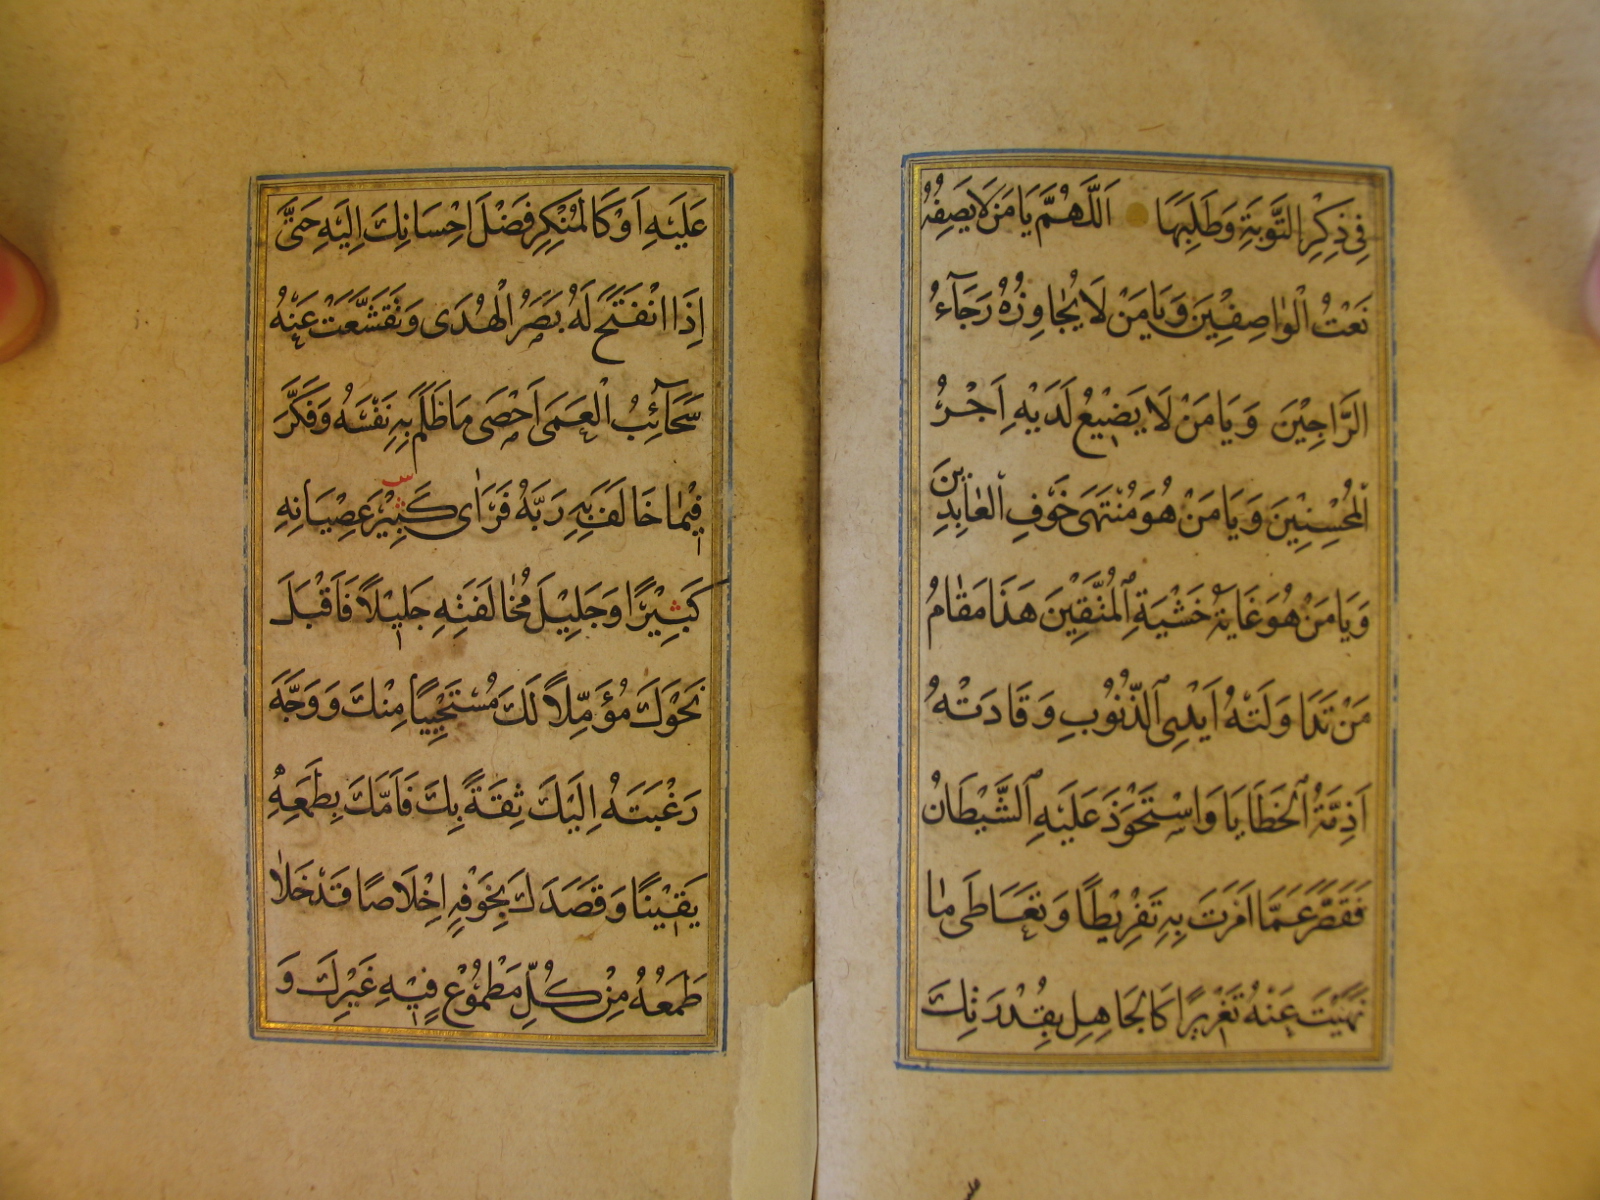 فِي ذِكْرِ التَّوْبَةِ وَطَلَبِهَا اَللَّهُمَّ يَا مَنْ لَا يَصِفُهُ
نَعْتُ الْوٰاصِفِيْنَ وَيَا مَنْ لَا يُجٰاوِزُهُ رَجَآءُ
الرَّاجِيْنَ وَيَا مَنْ لَا يَضِيْعُ لَدَيْهِ اَجْرُ
الْمُحْسِنِيْنَ وَيَا مَنْ هُوَ مُنْتَهَى خَوْفِ الْعٰابِدِيْنَ
وَيَا مَنْ هُوَ غَايَةُ خَشْيَةِ الْمُتَّقِيْنَ هَذَا مَقٰامُ
مَنْ تَدَاوَلَتْهُ اَيْدِى الذُّنُوْبِ وَقَادَتْهُ
اَزِمَّةُ الْخَطَايَا وَاسْتَحْوَذَ عَلَيْهِ الشَّيْطَانُ
فَقَصَّرَ عَمَّا اَمَرْتَ بِهِ تَفْرِيْطًا وَتَعَاطَى مٰا
نَهَيْتَ عَنْهُ تَغْرِيْرًا كَالْجَاهِلِ بِقُدْرَتِكَ
عَلَيْهِ اَوْ كَالْمُنْكِرِ فَضْلَ اِحْسَانِكَ اِلَيْهِ حَتَّى
اِذَا انْفَتَحَ لَهُ بَصَرُ الْهُدَى وَتَقَشَّعَتْ عَنْهُ
سَحَآئِبُ الْعَمَى اَحْصَى مَا ظَلَمَ بِهِ نَفْسَهُ وَفَكَّرَ
فِيْمٰا خَالَفَ بِهِ رَبَّهُ فَرَاٰى كَثِيْرَ عِصْيَانِهِ
كَثِيْرًا وَجَلِيْلَ مُخٰالَفَتِهِ جَلِيْلًا فَاَقْبَلَ
نَحْوَكَ مُؤَمِّلًا لَكَ مُسْتَحْيِيًا مِنْكَ وَوَجَّهَ
رَغْبَتَهُ اِلَيْكَ ثِقَةً بِكَ فَاَمَّكَ بِطَمَعِهِ
يَقِيْنًا وَقَصَدَكَ بِخَوْفِهِ اِخْلَاصًا قَدْ خَلٰا
طَمَعُهُ مِنْ كُلِّ مَطْمُوْعٍ فِيْهِ غَيْرِكَ وَ